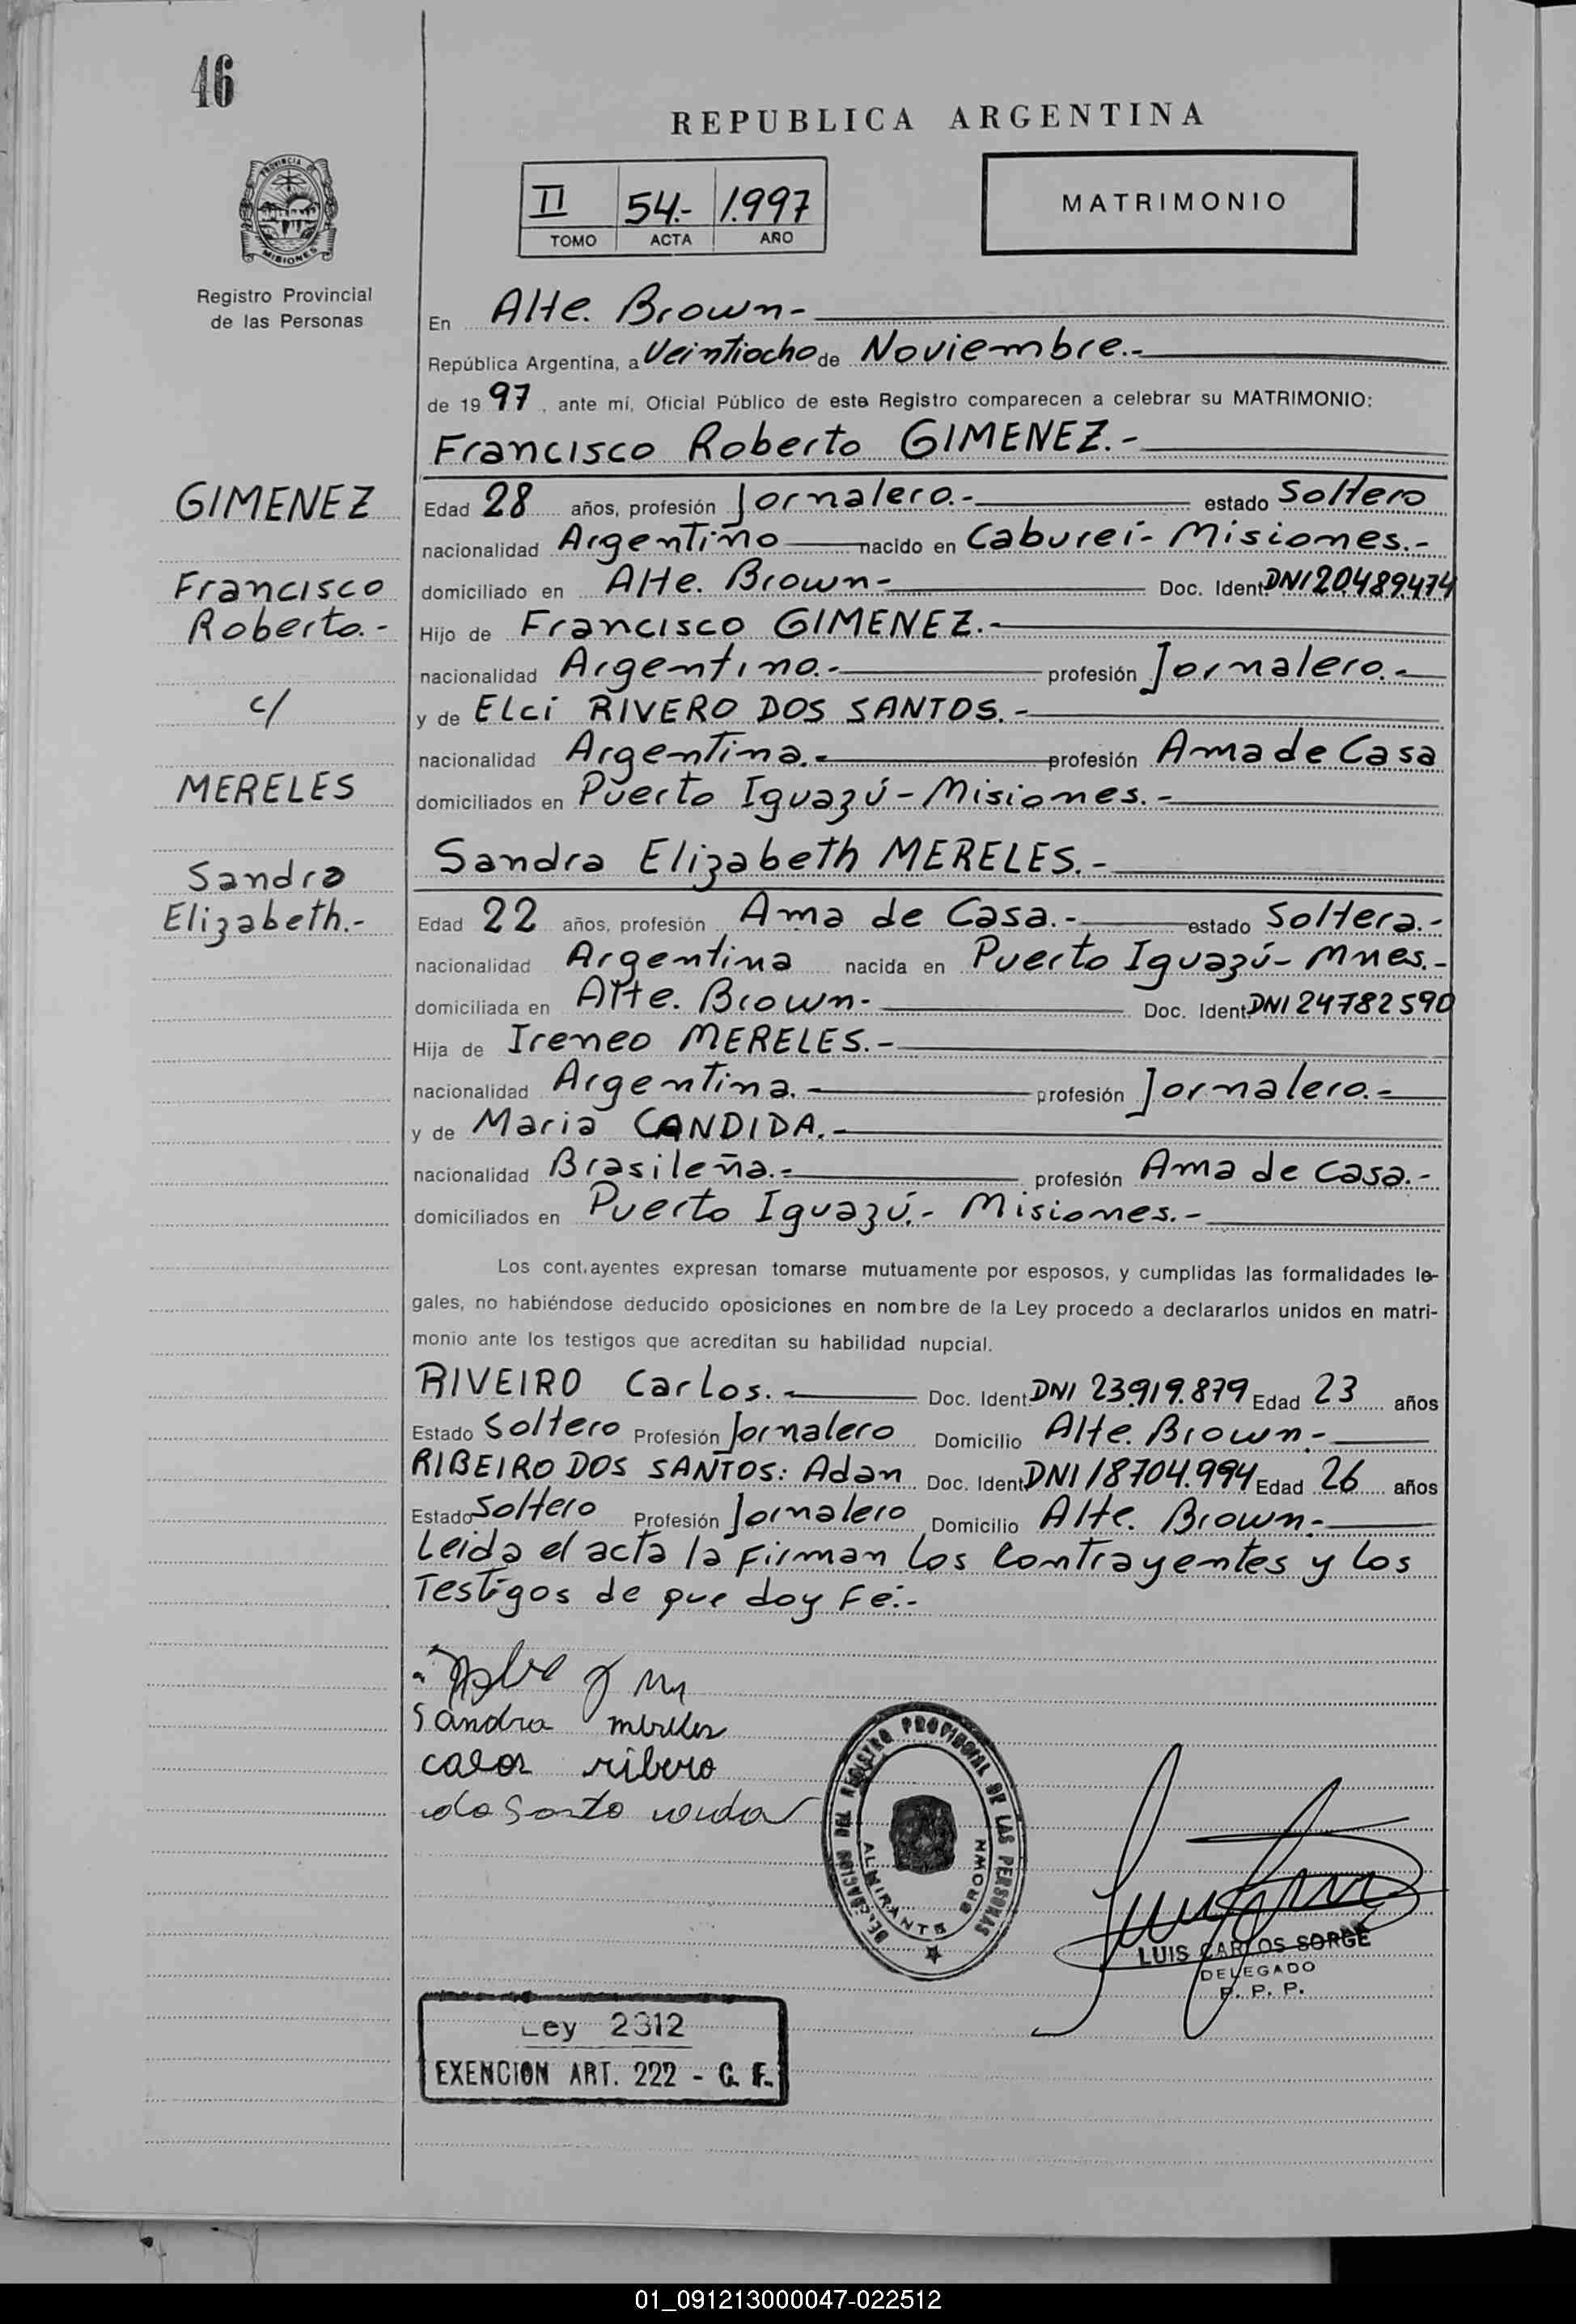 46
REPUBLICA ARGENTINA
PROVINCIA
MISIONES
Registro Provincial
de las Personas
II 54.- 1.997
TOMO ACTA AÑO
MATRIMONIO
En Alte. Brown-
República Argentina, a Veintiocho de Noviembre.-
de 19 97, ante mí, Oficial Público de este Registro comparecen a celebrar su MATRIMONIO:
Francisco Roberto GIMENEZ.-
GIMENEZ
Francisco
Roberto.-
c/
MERELES
Sandra
Elizabeth.-
Edad 28 años, profesión Jornalero.- estado Soltero
nacionalidad Argentino nacido en Cabureí- Misiones.-
domiciliado en Alte. Brown- Doc. Ident. DNI 20.489.474
Hijo de Francisco GIMENEZ.-
nacionalidad Argentino.- profesión Jornalero.-
y de Elci RIVERO DOS SANTOS.-
nacionalidad Argentina.- profesión Ama de Casa
domiciliados en Puerto Iguazú - Misiones.-
Sandra Elizabeth MERELES.-
Edad 22 años, profesión Ama de Casa.- estado Soltera.-
nacionalidad Argentina nacida en Puerto Iguazú- Mnes.-
domiciliada en Alte. Brown- Doc. Ident. DNI 24782590
Hija de Ireneo MERELES.-
nacionalidad Argentina.- profesión Jornalero.-
y de Maria CANDIDA.-
nacionalidad Brasileña.- profesión Ama de casa.-
domiciliados en Puerto Iguazú.- Misiones.-
Los cont.ayentes expresan tomarse mutuamente por esposos, y cumplidas las formalidades le-
gales, no habiéndose deducido oposiciones en nombre de la Ley procedo a declararlos unidos en matri-
monio ante los testigos que acreditan su habilidad nupcial.
RIVEIRO Carlos.- Doc. Ident. DNI 23.919.879 Edad 23 años
Estado Soltero Profesión Jornalero Domicilio Alte. Brown.-
RIBEIRO DOS SANTOS: Adan Doc. Ident. DNI 18704.994 Edad 26 años
Estado Soltero Profesión Jornalero Domicilio Alte. Brown.-
Leida el acta la Firman los Contrayentes y los
Testigos de que doy Fé.-
Sandra mereles
ribero
DELEGACION DEL REGISTRO PROVINCIAL DE LAS PERSONAS
ALMIRANTE BROWN
LUIS CARLOS SORGE
DELEGADO
R. P. P.
Ley 2312
EXENCION ART. 222 - C. F.
01_091213000047-022512